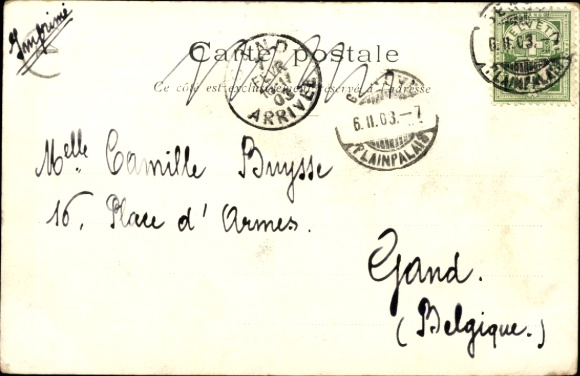 Imprimé
Carte postale
Ce côté est exclusivement réservé à l'adresse
GAND
FEVR
03
ARRIVÉE
6.II.03.–7
PLAINPALAIS
HELVETIA
6.II.03.
PLAINPALAIS
Melle Camille Buysse
16, Place d'Armes.
Gand.
(Belgique.)